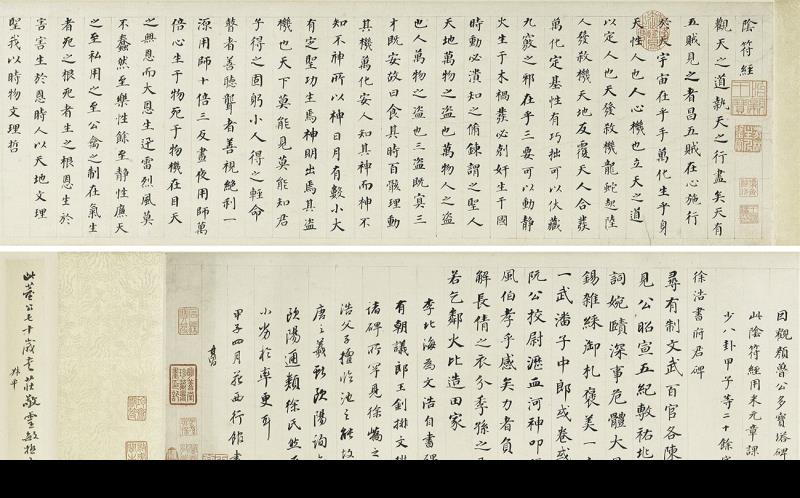 陰符經
觀天之道執天之行盡矣天有
五賊見之者昌五賊在心施行
於天宇宙在乎手萬化生乎身
天性人也人心機也立天之道
以定人也天發殺機龍蛇起陸
人發殺機天地反覆天人合發
萬化定基性有巧拙可以伏藏
九竅之邪在乎三要可以動靜
火生于木禍發必剋奸生于國
時動必潰知之脩鍊謂之聖人
天地萬物之盜也萬物人之盜
也人萬物之盜也三盜既冥三
才既安故曰食其時百骸理動
其機萬化安人知其神而神不
知不神所以神日月有數小大
有定聖功生焉神明出焉其盜
機也天下莫能見莫能知君
子得之固躬小人得之輕命
瞽者善聽聾者善視絕利一
源用師十倍三反晝夜用師萬
倍心生于物死于物機在目天
之無恩而大恩生迅雷烈風莫
不蠢然至樂性餘至靜性廉天
之至私用之至公禽之制在氣生
者死之根死者生之根恩生於
害害生於恩時人以天地文理
聖我以時物文理哲
因觀顏魯公多寶塔碑
此陰符經用米元章課
少八卦甲子等二十餘字
徐浩書府君碑
尋有制文武百官各陳
見公昭宣五紀敷祐
詞婉賾深事危體大
錫雜綵御札褒美一
一武潘子中郎或卷或
阮公校尉瀝血河神叩
風伯孝乎感矣力者負
解長倩之衣分季孫之
若乞鄰火比造田家
李北海為文浩自書碑
有朝議郎王釗排文
諸碑所罕見徐嶠之
浩父子擅臨池之能故
唐之羲獻歐陽詢
歐陽通類徐氏然
小劣於率更耳
甲子四月苑西行館書
其昌
此董公七十歲書莊敬靈